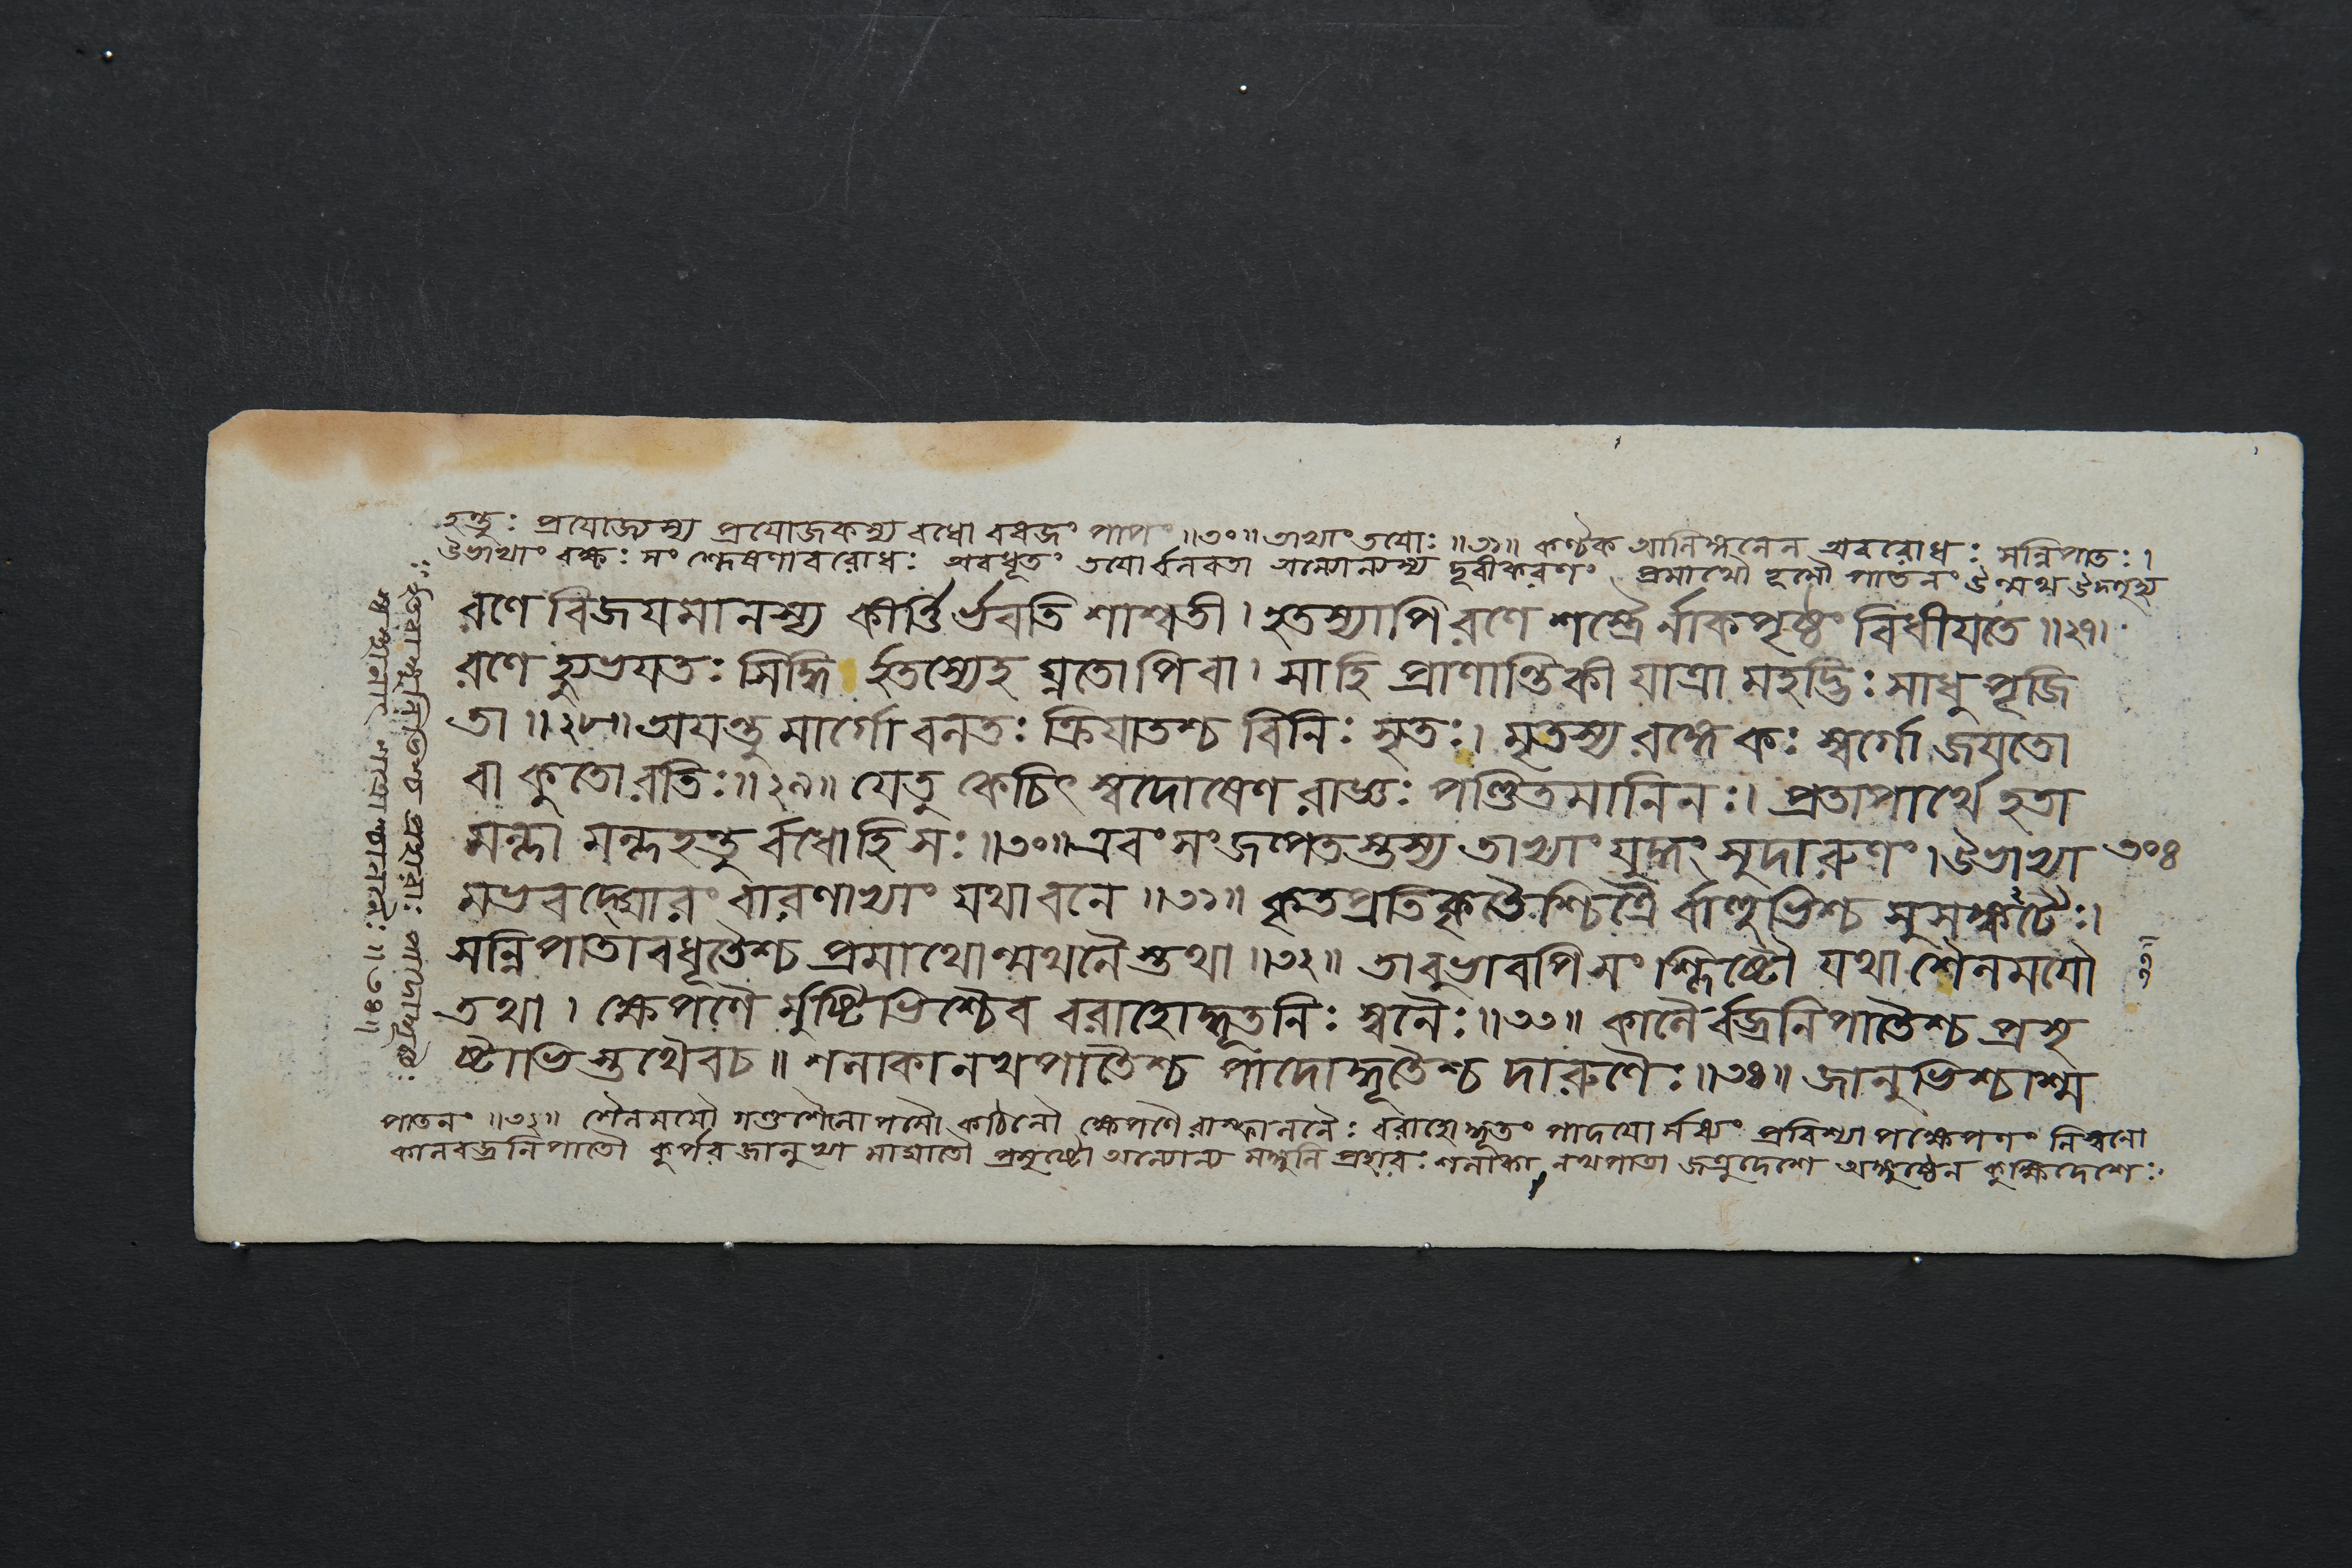 হন্তুঃ প্রযোজ্যস্য প্রযোজকস্য বধো বধজং পাপং ॥৩০॥ তাভ্যাং তযোঃ ॥৩১॥ কণ্টক আলিঙ্গনেন অবরোধঃ সন্নিপাতঃ।
উভাভ্যাং বক্ষঃ সংশ্লেষণাবরোধঃ অবধূতং তযোর্বলবতা অন্যোন্যস্য দূরীকরণং প্রমাথৌ ভূমৌ পাতনং উন্মথ্য উদ্ধৃত্য
রণে বিজযমানস্য কীর্ত্তির্ভবতি শাশ্বতী। হতস্যাপি রণে শস্ত্রৈর্নাকপৃষ্ঠং বিধীযতে ॥২৭।
রণে হ্যুভযতঃ সিদ্ধি র্হতস্যেহ ঘ্নতোপিবা। সাহি প্রাণান্তিকী যাত্রা মহদ্ভিঃ সাধু পূজি
তা ॥২৮॥ অযন্তু মার্গো বলতঃ ক্রিযাতশ্চ বিনিঃ সৃতঃ। মৃতস্য রঙ্গে কঃ স্বর্গো জযতো
বা কুতো রতিঃ ॥২৯॥ যেতু কেচিৎ স্বদোষেণ রাজ্ঞঃ পণ্ডিতমানিনঃ। প্রতাপার্থে হতা
মল্লা মল্লহন্তু র্বধোহি সঃ ॥৩০॥ এবং সংজল্পতস্তস্য তাভ্যাং যুদ্ধং সুদারুণং। উভাভ্যা
৩০৪
মভবদ্ঘোরং বারণাভ্যাং যথা বনে ॥৩১॥ কৃতপ্রতিকৃতৈশ্চিত্রৈ র্বাহুভিশ্চ সুসঙ্কটৈঃ।
সন্নিপাতাবধূতৈশ্চ প্রমাথোন্মথনৈস্তথা ॥৩২॥ তাবুভাবপি সংশ্লিষ্টৌ যথা শৈলমযৌ
তথা। ক্ষেপণৈ র্মুষ্টিভিশ্চৈব বরাহোদ্ধূতনিঃ স্বনৈঃ ॥৩৩॥ কালৈ র্বজ্রনিপাতৈশ্চ প্রসৃ
ষ্টাভিস্তথৈবচ ॥ শলাকানখপাতৈশ্চ পাদোদ্ধূতৈশ্চ দারুণৈঃ ॥৩৪॥ জানুভিশ্চাশ্ম
পাতনং ॥৩২॥ শৈলমযৌ গণ্ডশৈলোপমৌ কঠিনৌ ক্ষেপণৈ রাস্ফালনৈঃ বরাহোদ্ধূতং পাদযো র্মধ্যং প্রবিশ্যাপক্ষেপণং নিস্বনো
কালবজ্রনিপাতৌ কুর্পর জানুভ্যা মাঘাতৌ প্রসৃষ্টৌ অন্যোন্য মঙ্গুলি প্রহারঃ শলাকা নখপাতা জত্রুদেশে অঙ্গুষ্ঠেন কুক্ষিদেশেঃ